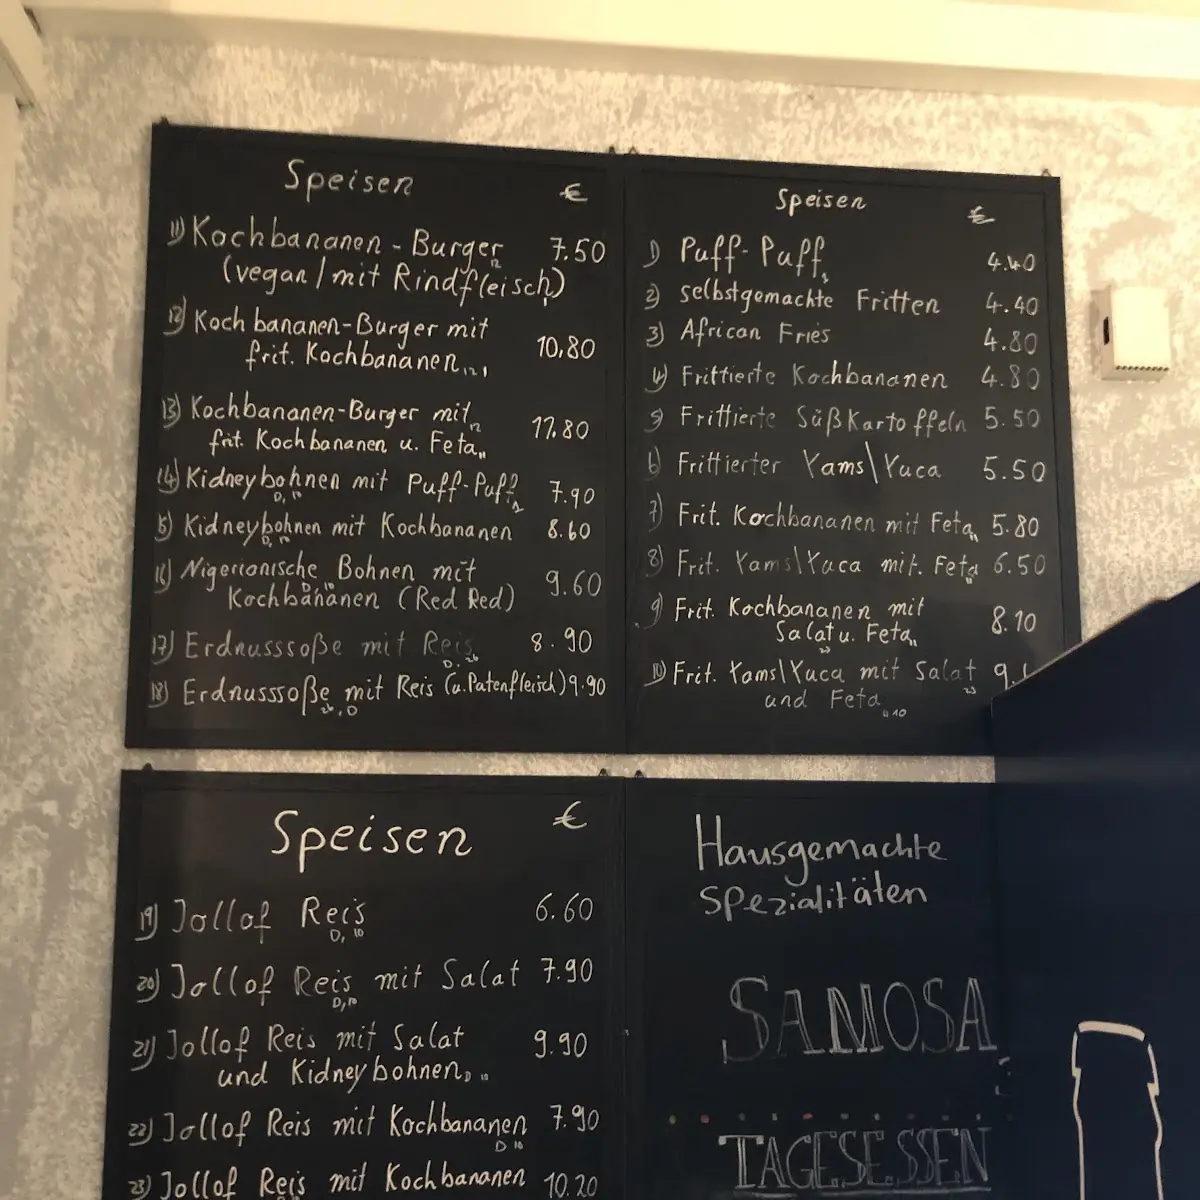 Speisen €
11) Kochbananen - Burger 12 7.50
(vegan/mit Rindfleisch)
12) Kochbananen-Burger mit
frit. Kochbananen 10.80
13) Kochbananen-Burger mit 12
frit. Kochbananen u. Feta 11.80
14) Kidneybohnen mit Puff-Puff 7.90
D, 10
15) Kidneybohnen mit Kochbananen 8.60
D, 10
16) Nigerianische Bohnen mit
D, 10
Kochbananen (Red Red) 9.60
17) Erdnusssoße mit Reis 8.90
D, 26
18) Erdnusssoße mit Reis (u. Patenfleisch) 9.90
26, D
Speisen €
1) Puff-Puff 4.40
2) selbstgemachte Fritten 4.40
3) African Fries 4.80
4) Frittierte Kochbananen 4.80
5) Frittierte Süßkartoffeln 5.50
6) Frittierter Yams\Yuca 5.50
7) Frit. Kochbananen mit Feta 5.80
8) Frit. Yams\Yuca mit. Feta 6.50
9) Frit. Kochbananen mit
Salat u. Feta 8.10
10) Frit. Yams\Yuca mit Salat 9.
und Feta
Speisen €
19) Jollof Reis 6.60
D, 10
20) Jollof Reis mit Salat 7.90
D, 10
21) Jollof Reis mit Salat 9.90
und Kidneybohnen D 10
22) Jollof Reis mit Kochbananen 7.90
D 10
23) Jollof Reis mit Kochbananen 10.20
Hausgemachte
Spezialitäten
SAMOSA
TAGESESSEN